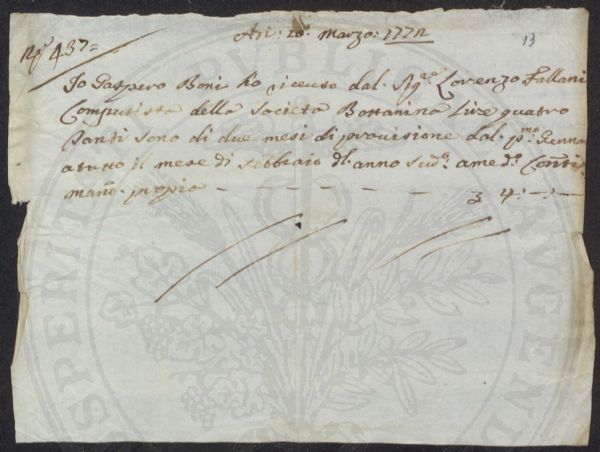 Adì: 10: Marzo: 1772
13
N.º 437=
Io Gaspero Boni ho riceuto dal Sig.re Lorenzo Fallani
Computista della Società Bottanina Lire quatro
Tanti sono di due mesi di provisione dal p.mo Genna
a tutto il mese di Febbraio d.º anno sud.º a me d.º Conti
mano propia - - - - - - - £ 4:-:-
PUBLICAE
AUGEND